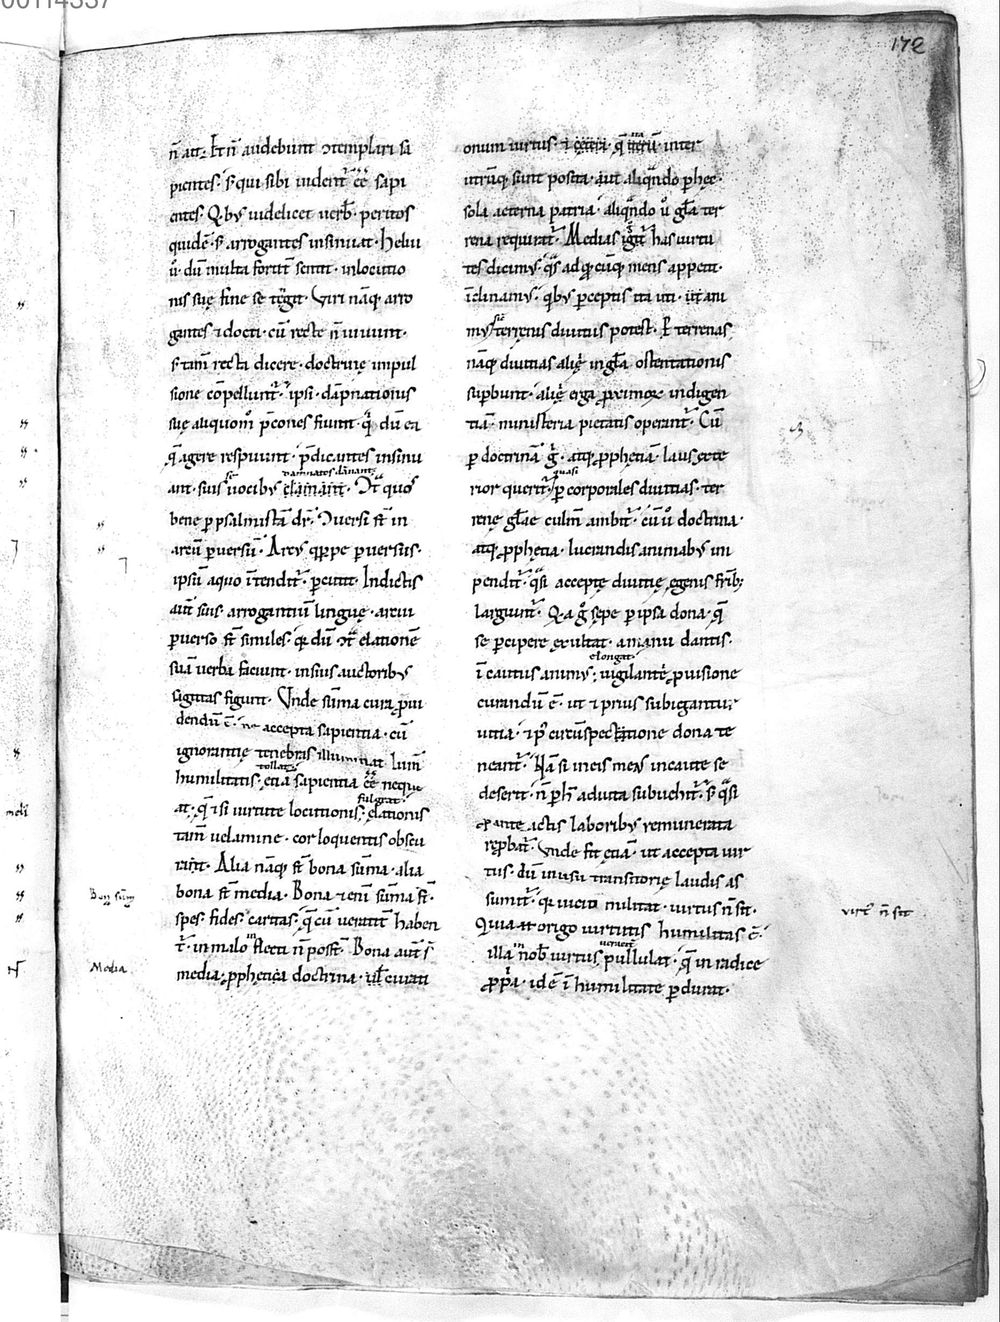 172
n̄ ait. Et n̄ audebunt ɔtemplari sa
pientes. s; qui sibi uident̄ ēē sapi
entes. Q͛by uidelicet uerb̄ peritos
quidē. s; arrogantes insinuat. Heliu
ů. dū multa fortit̄ sentit. inlocutio
nis suę fine se tegit. Viri nāq; arro
gantes ⁊ docti. cū recte n̄ uiuunt.
s; tam̄ recta dicere. doctrinę impul
sione cōpellunt̄. ipsi dāpnationis
suę aliquom̊ p̄cones fiunt. q̄ dū ea
q̄ agere respuunt. p̄dicantes insinu
ant. suis uocibꝰ clamant. Dn̄t quos
bene ꝑ psalmistā dr̄. Ɔuersi st̄ in
arcū ꝑuersū. Arcꝰ q̇ppe ꝑuersus.
ipsū aquo ītendit̄. ꝑcutit. Indictis
aūt suis. arrogantiū linguę. arcui
ꝑuerso st̄ similes. q; dū ꝯt̄ elationē
suā uerba faciunt. insuis auctoribꝰ
sagittas figunt. Vnde sūma cura ꝓui
dendū ē. ne accepta sapientia. cū
ignorantię tenebris illuminat. lum̄
tollat
humilitatis. etiā sapientia ēē neque
fulgeat
at. q̄ ⁊si uirtute locutionis. elationis
tam̄ uelamine. cor loquentis obscu
rat̄. Alia nāq; st̄ bona sūma. alia
bona st̄ media. Bona etenī sūma st̄.
spes. fides. caritas. q̄ cū ueracit̄ haben
t̄. in malo flecti n̄ poss̄t. Bona aūt s̄
media. ꝓphetica doctrina. ul̄ curati
Bon̄ sūm
Media
onum uirtus. ⁊ cetera. q̄ iterū inter
utrāq; sunt posita. aut aliqn̄do ꝑ hęc
sola aeterna patria. aliqn̄do ů gl̄a ter
rena requirat̄. Medias igit̄ has uirtu
tes dicimꝰ. q̇s ad q̊cūq; mens appetit.
īclinamꝰ. q̇bꝰ ꝑceptis ita uti. ut ani
mꝰ sic terrenis diuitiis potest. Et terrenas
nāq; diuitias aliq̇ in gl̄a ostentationis
supbiunt. aliq̇ erga ꝓximoꝝ indigen
tiā. ministeria pietatis operant̄. Cū
ꝑ doctrinā ḡ. atq; ꝓphetiā. laus exte
quasi
rior querit̄. ꝑ corporales diuitias. ter
renę gl̄ae culm̄ ambit̄. cū ů doctrina.
atq; ꝓphetia. lucrandis animabꝰ im
pendit̄. q̇si acceptę diuitię. egenis fr̄ibꝫ
largiunt̄. Q;a g̊ sepe ꝑ ipsa dona. q̄
se ꝑcipere exultat. amanu dantis.
elongat
īcautus animꝰ; uigilanti ꝓuisione
curandū ē. ut ⁊ prius subigantur
uitia. ⁊ p̊ circūspectione dona te
neant̄. Nā si ineis mens incaute se
deserit. n̄ ꝑ hęc adiuta subuehit̄. s; q̇si
ꝓ ante actis laboribꝰ remunerata
reꝓbat̄. Vnde fit etiā. ut accepta uir
tus. dū inusū transitorię laudis as
sumit̄. q; uicio militat. uirtus n̄ sit.
Quia at origo uirtutis humilitas ē.
illa in nob̄ uirtus pullulat. q̄ in radice
ꝓpr̄ia. id ē ī humilitate ꝑdurat.
uirt̄ n̄ sit